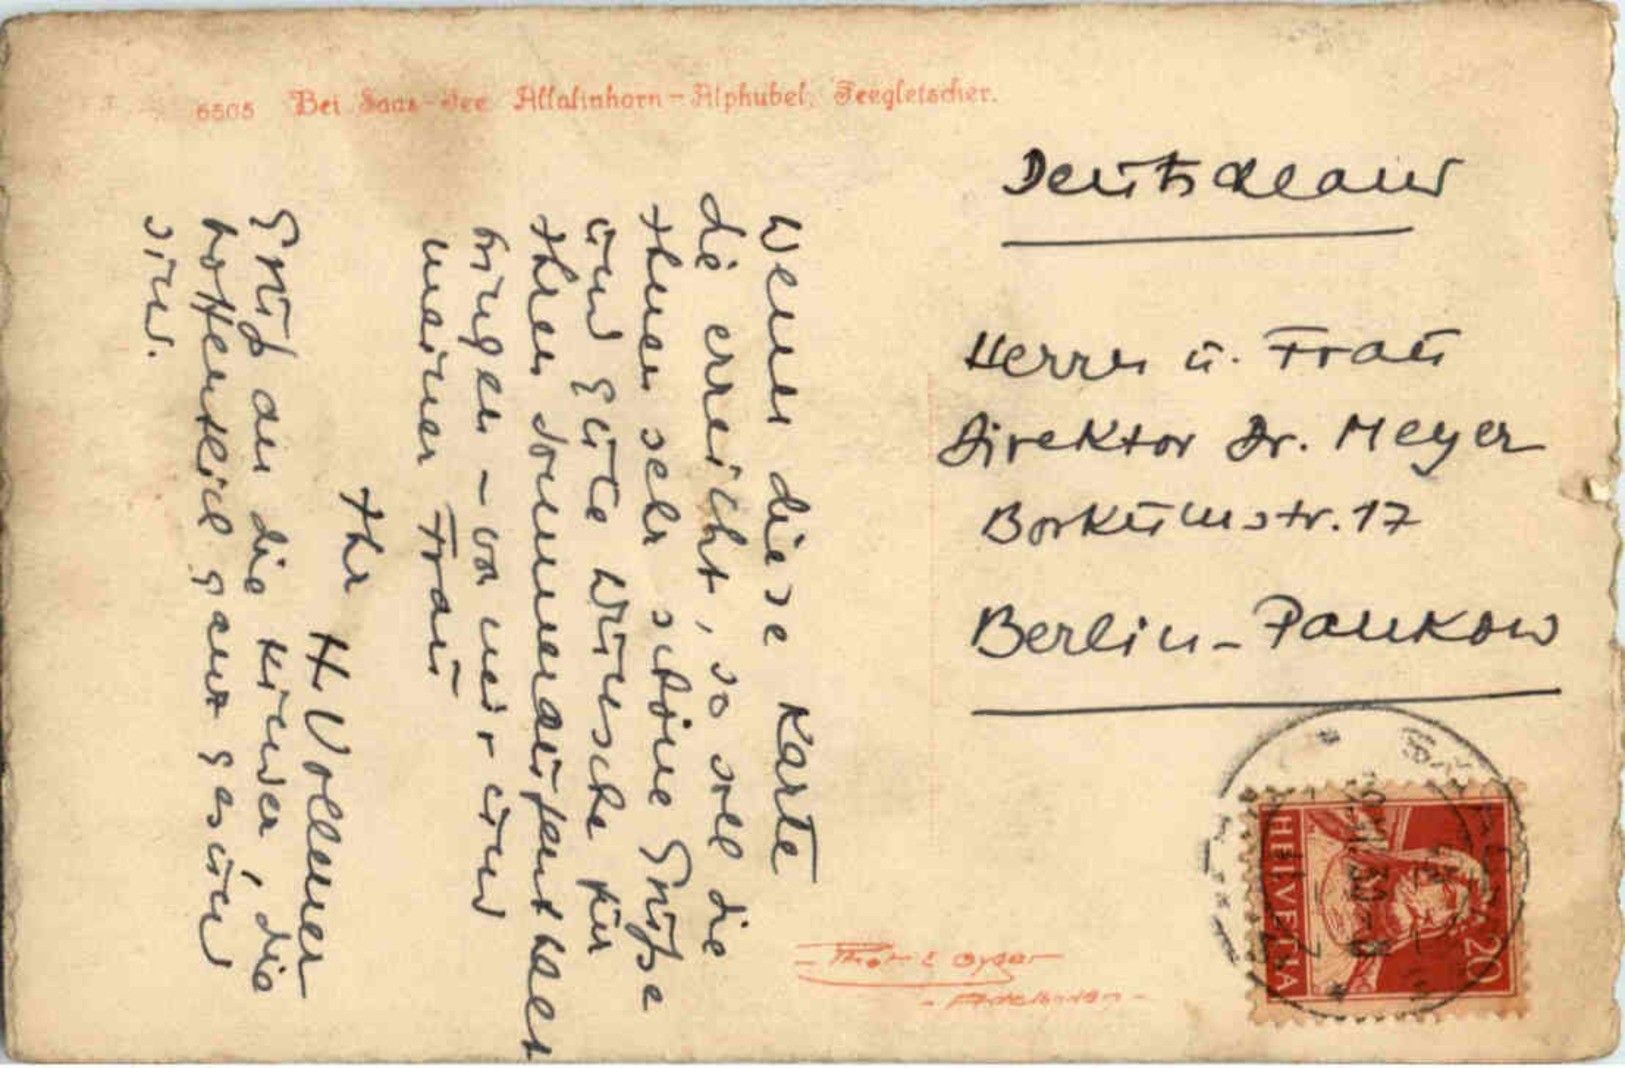 6505 Bei Saas-Fee Allalinhorn-Alphubel, Feegletscher.
Wenn diese Karte
Sie erreicht, so soll die
Ihnen sehr schöne Grüße
und gute Wünsche für
Ihren Sommeraufenthalt
bringen - von mir und
meiner Frau
Ihr
H. Vollmer
Gruß an die Kinder, die
hoffentlich ganz gesund
sind.
Deutschland
Herrn u. Frau
Direktor Dr. Meyer
Borkumstr. 17
Berlin-Pankow
HELVETIA
20
Phot E Gyger
- Adelboden -